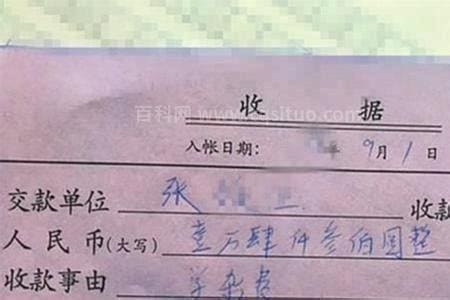 百科网
收 据
入帐日期: 年 9月1日
交款单位 张 收款
人民币(大写) 壹万肆仟叁佰圆整
收款事由 学杂费